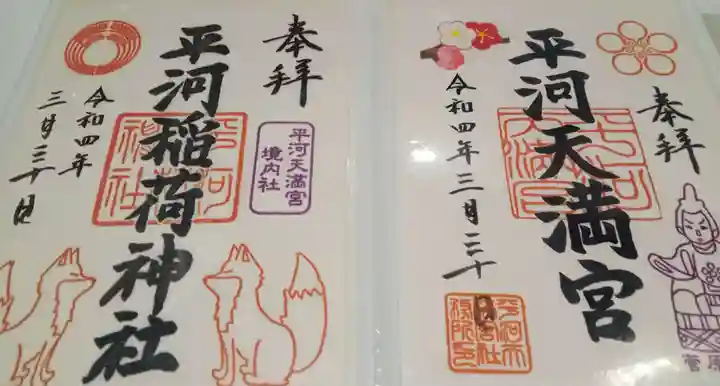 奉拝
平河天満宮
令和四年三月三十日
菅原
奉拝
平河天満宮
境内社
平河稲荷神社
令和四年
三月三十日